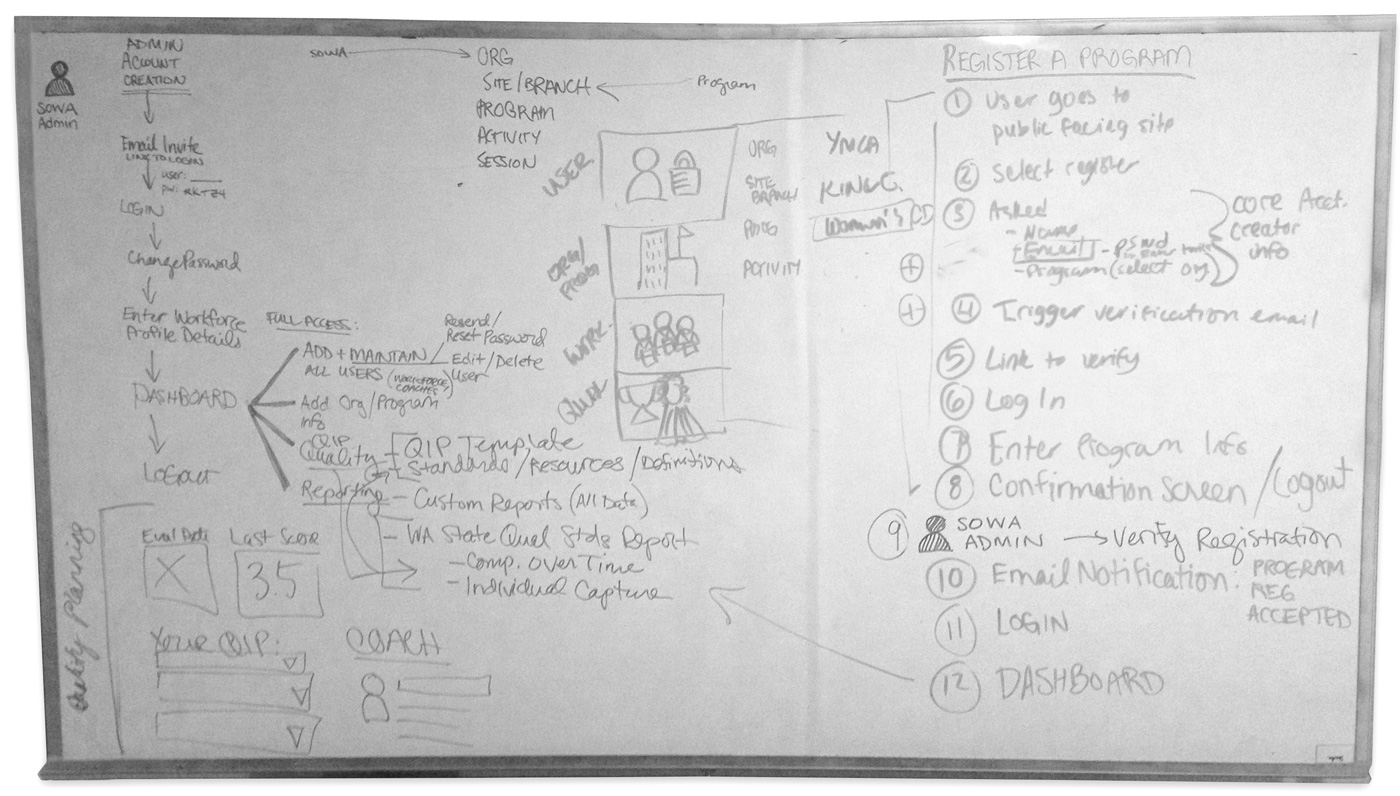 SOWA
Admin
ADMIN
ACCOUNT
CREATION
Email Invite
LINK TO LOGIN
user:
pw:
LOGIN
Change Password
Enter Workforce
Profile Details
DASHBOARD
LOGOUT
FULL ACCESS:
ADD + MAINTAIN
ALL USERS (WORKFORCE, COACHES)
Resend/
Reset Password
Edit/Delete
User
Add Org/Program
Info
QIP
Quality
QIP Template
Standards/Resources/Definitions
Reporting - Custom Reports (All Data)
- WA State Qual Stds Report
- Comp. Over Time
- Individual Capture
SOWA
ORG
SITE/BRANCH
Program
PROGRAM
ACTIVITY
SESSION
USER
ORG/
PROG
WORK.
QUAL
ORG
SITE
BRANCH
PROG
ACTIVITY
YMCA
KING C.
Woman's
Quality Planning
Eval Date
Last Score
X
3.5
YOUR QIP:
COACH
REGISTER A PROGRAM
1 User goes to
public facing site
2 Select register
3 Asked
- Name
- Email - PSWD
- Program (select org)
core Acct.
creator
info
4 Trigger verification email
5 Link to verify
6 Log In
7 Enter Program Info
8 Confirmation Screen / Logout
9 SOWA
ADMIN → Verify Registration
10 Email Notification: PROGRAM
REG
ACCEPTED
11 LOGIN
12 DASHBOARD